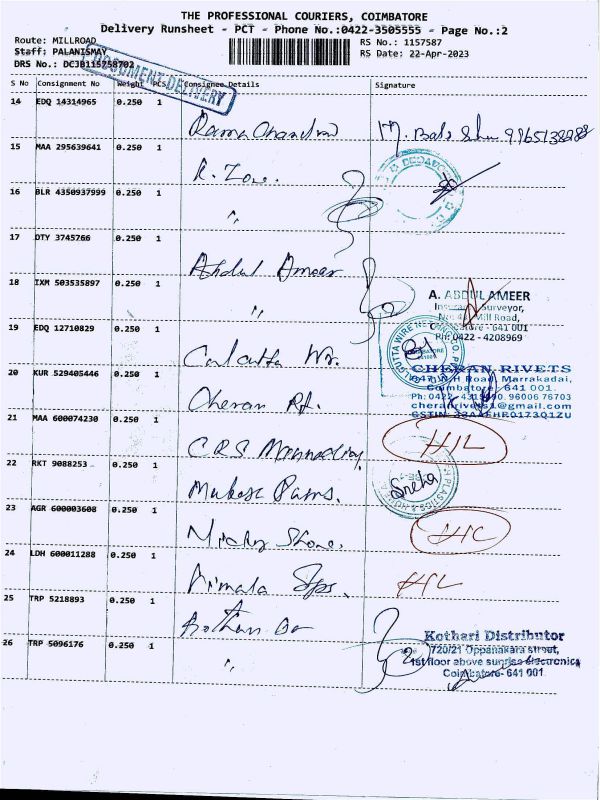 THE PROFESSIONAL COURIERS, COIMBATORE
Delivery Runsheet - PCT - Phone No.:0422-3505555 - Page No.:2
Route: MILLROAD
RS No.: 1157587
Staff: PALANISMAY
RS Date: 22-Apr-2023
DRS No.: DCJB115758702
DOCUMENT DELIVERY
S No Consignment No Weight PCS Consignee Details Signature
14 EDQ 14314965 0.250 1 Rama Chandra
15 MAA 295639641 0.250 1 R. Zone.
16 BLR 4350937999 0.250 1 "
17 DTY 3745766 0.250 1 Abdul Ameer
18 IXM 503535897 0.250 1 "
A. ABDUL AMEER
Surveyor,
Mill Road,
641 001
PH: 0422 - 4208969
19 EDQ 12710829 0.250 1 Calcutta Wr.
20 KUR 529405446 0.250 1 Cheran Rt.
CHERAN RIVETS
W.H Road, Marrakadai,
Coimbatore - 641 001.
96006 76703
cheranrivets1@gmail.com
21 MAA 600074230 0.250 1 CRS
22 RKT 9088253 0.250 1 Mukesh Pams. Sneha
23 AGR 600003608 0.250 1
24 LDH 600011288 0.250 1 Nirmala
25 TRP 5218893 0.250 1
26 TRP 5096176 0.250 1 "
Kothari Distributor
720/21 Oppanakara street,
1st floor above sunrise electronics
Coimbatore- 641 001